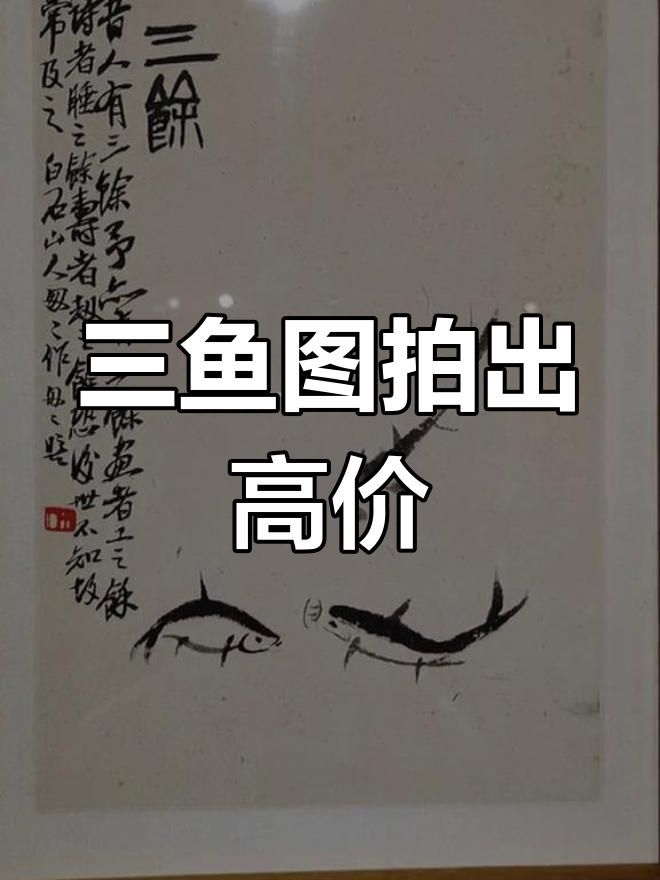 三餘
昔人有三餘予亦餘畫者工之餘
詩者睡之餘壽者劫之餘恐後世不知故
常及之 白石山人作
三鱼图拍出
高价